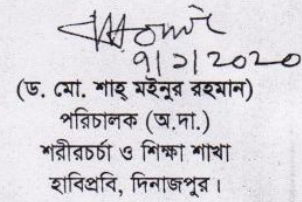 ৭|১|2020
(ড. মো. শাহ্ মইনুর রহমান)
পরিচালক (অ.দা.)
শরীরচর্চা ও শিক্ষা শাখা
হাবিপ্রবি, দিনাজপুর।